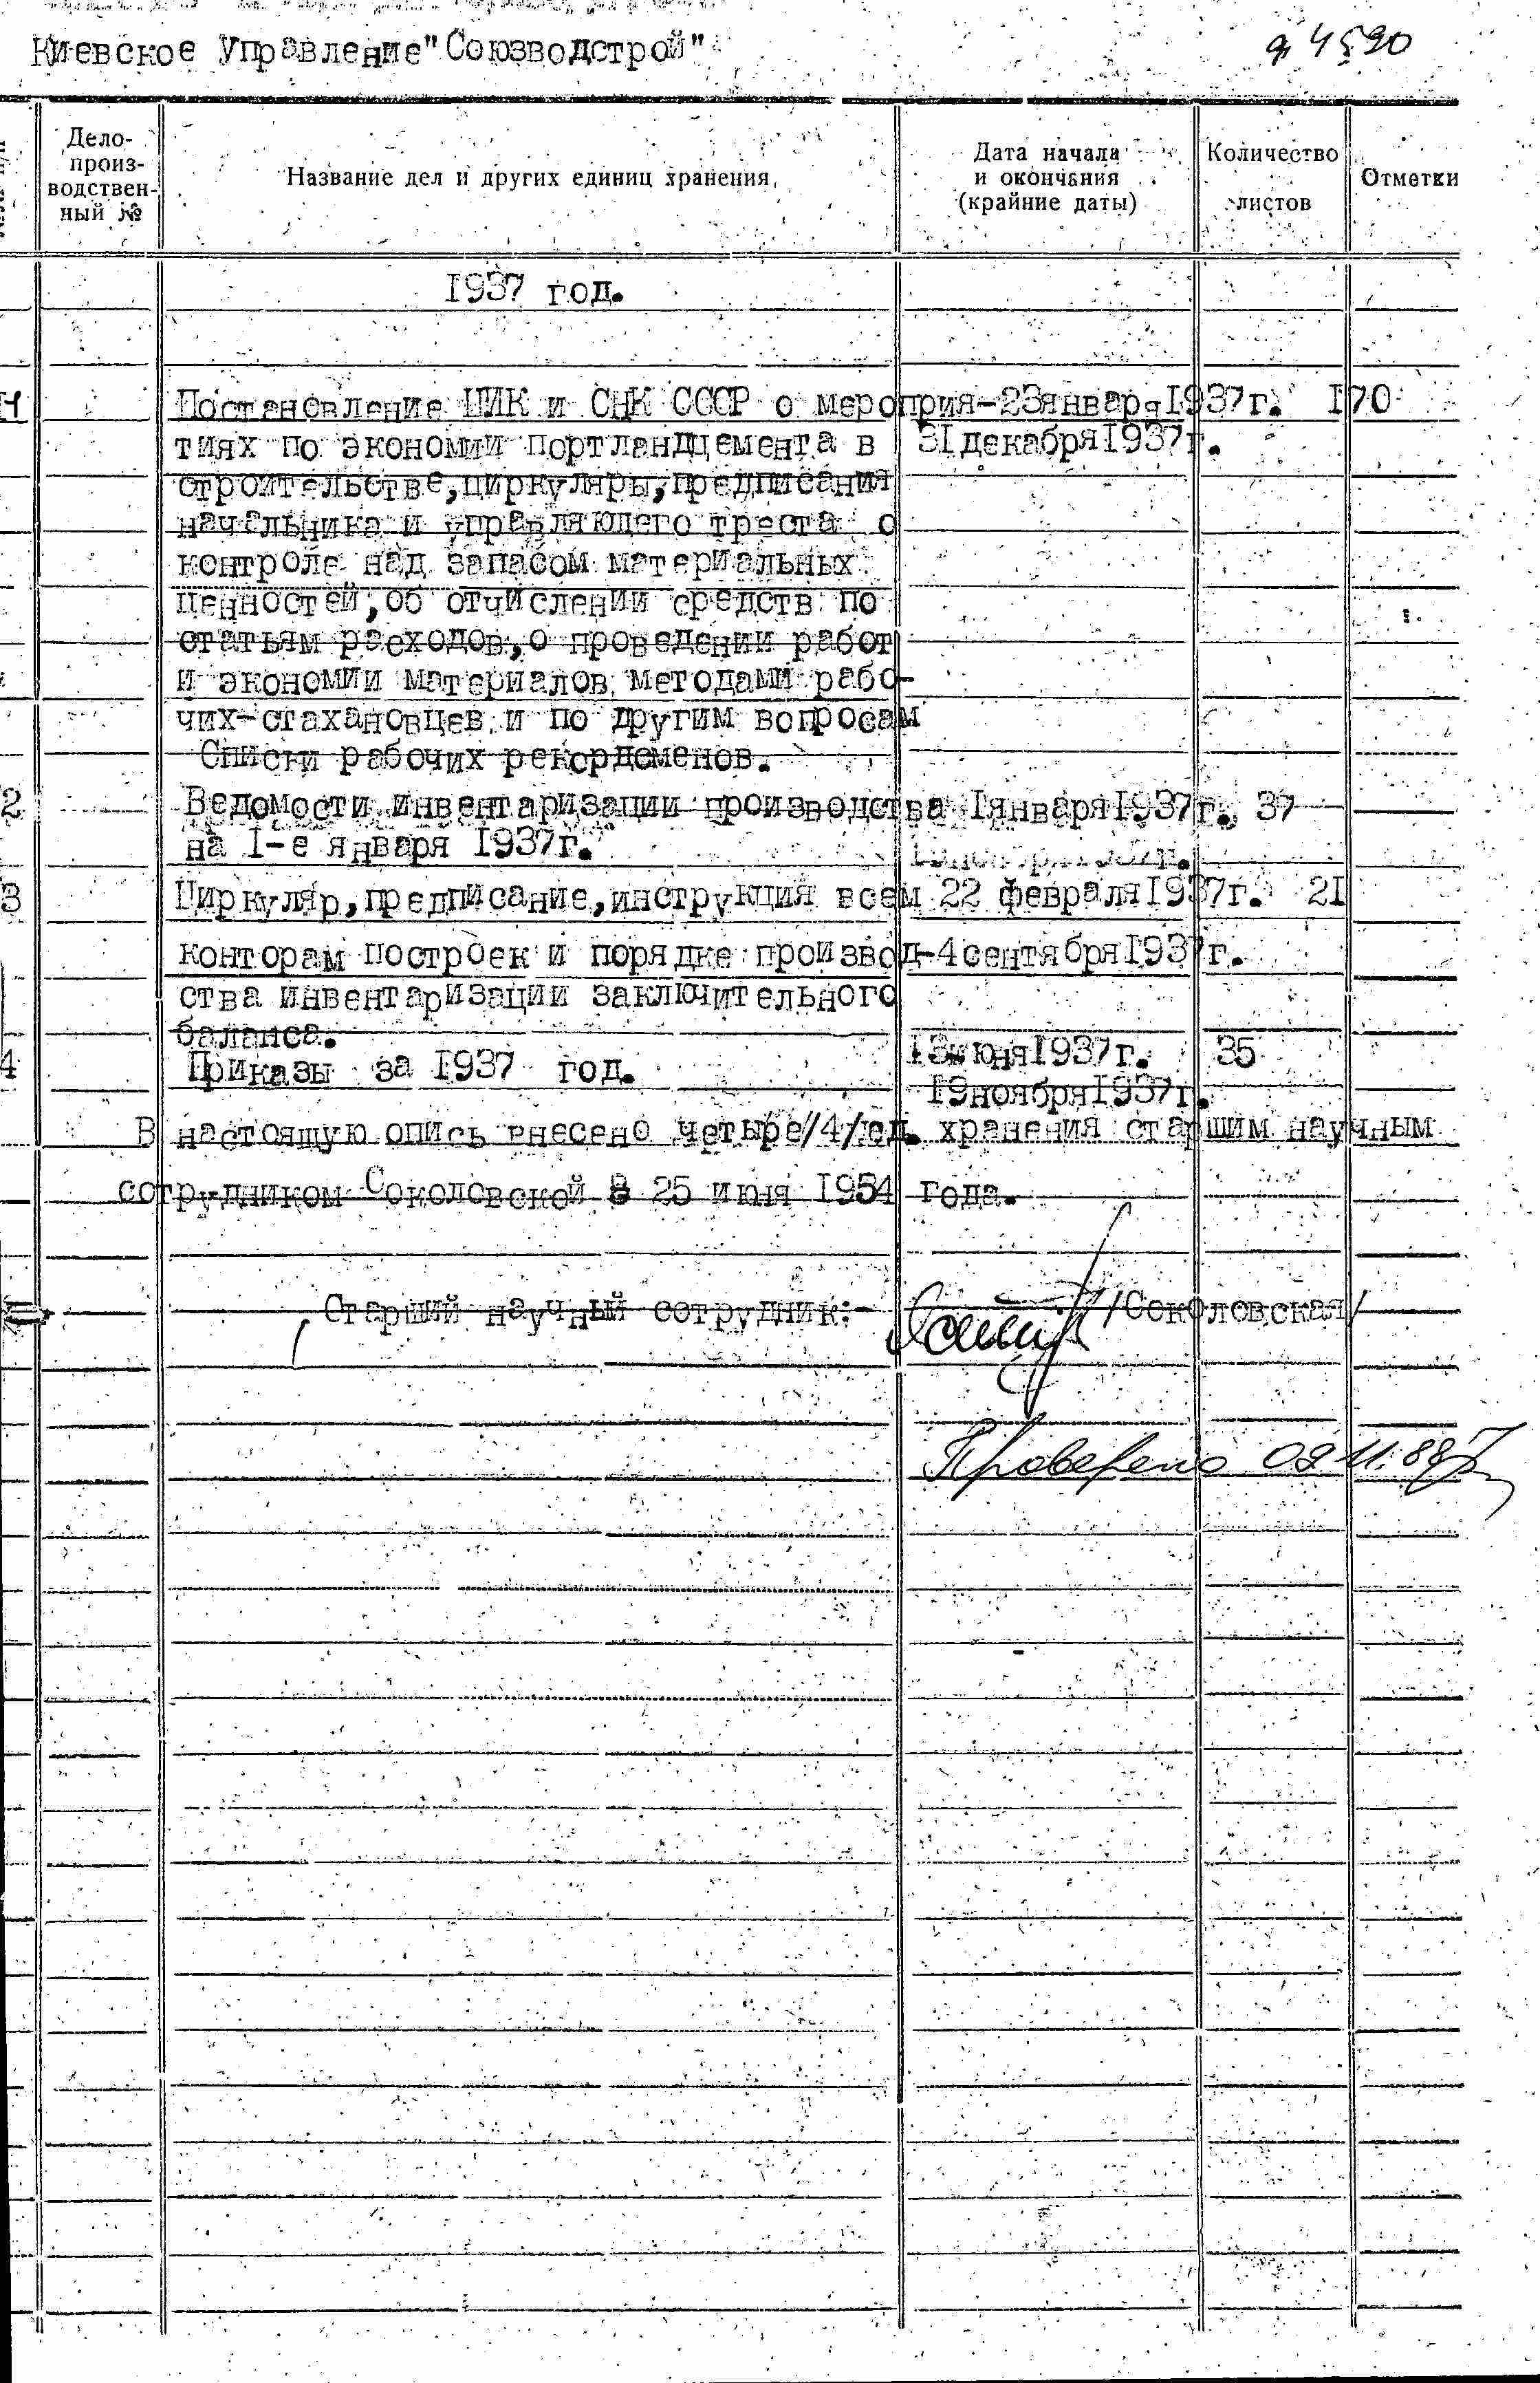 Киевское Управление "Союзводстрой"
4590
Дело-
произ-
водствен-
ный №
Название дел и других единиц хранения
Дата начала
и окончания
(крайние даты)
Количество
листов
Отметки
1937 год.
1 Постановление ЦИК и СНК СССР о мероприя- 23января1937г. 170
тиях по экономии портландцемента в 31декабря1937г.
строительстве,циркуляры,предписания
начальника и управляющего треста о
контроле над запасом материальных
ценностей,об отчислении средств по
статьям расходов,о проведении работ
и экономии материалов методами рабо-
чих-стахановцев и по другим вопросам
Списки рабочих рекордсменов.
2 Ведомости инвентаризации производства 1января1937г. 37
на 1-е января 1937г.
3 Циркуляр,предписание,инструкция всем 22 февраля1937г. 21
конторам построек и порядке производ- 4сентября1937г.
ства инвентаризации заключительного
баланса.
4 Приказы за 1937 год. 13июня1937г. 35
19ноября1937г.
В настоящую опись внесено четыре/4/ед. хранения старшим научным
сотрудником Соколовской 25 июня 1954 года.
Старший научный сотрудник:- /Соколовская/
Проверено 09.11.88